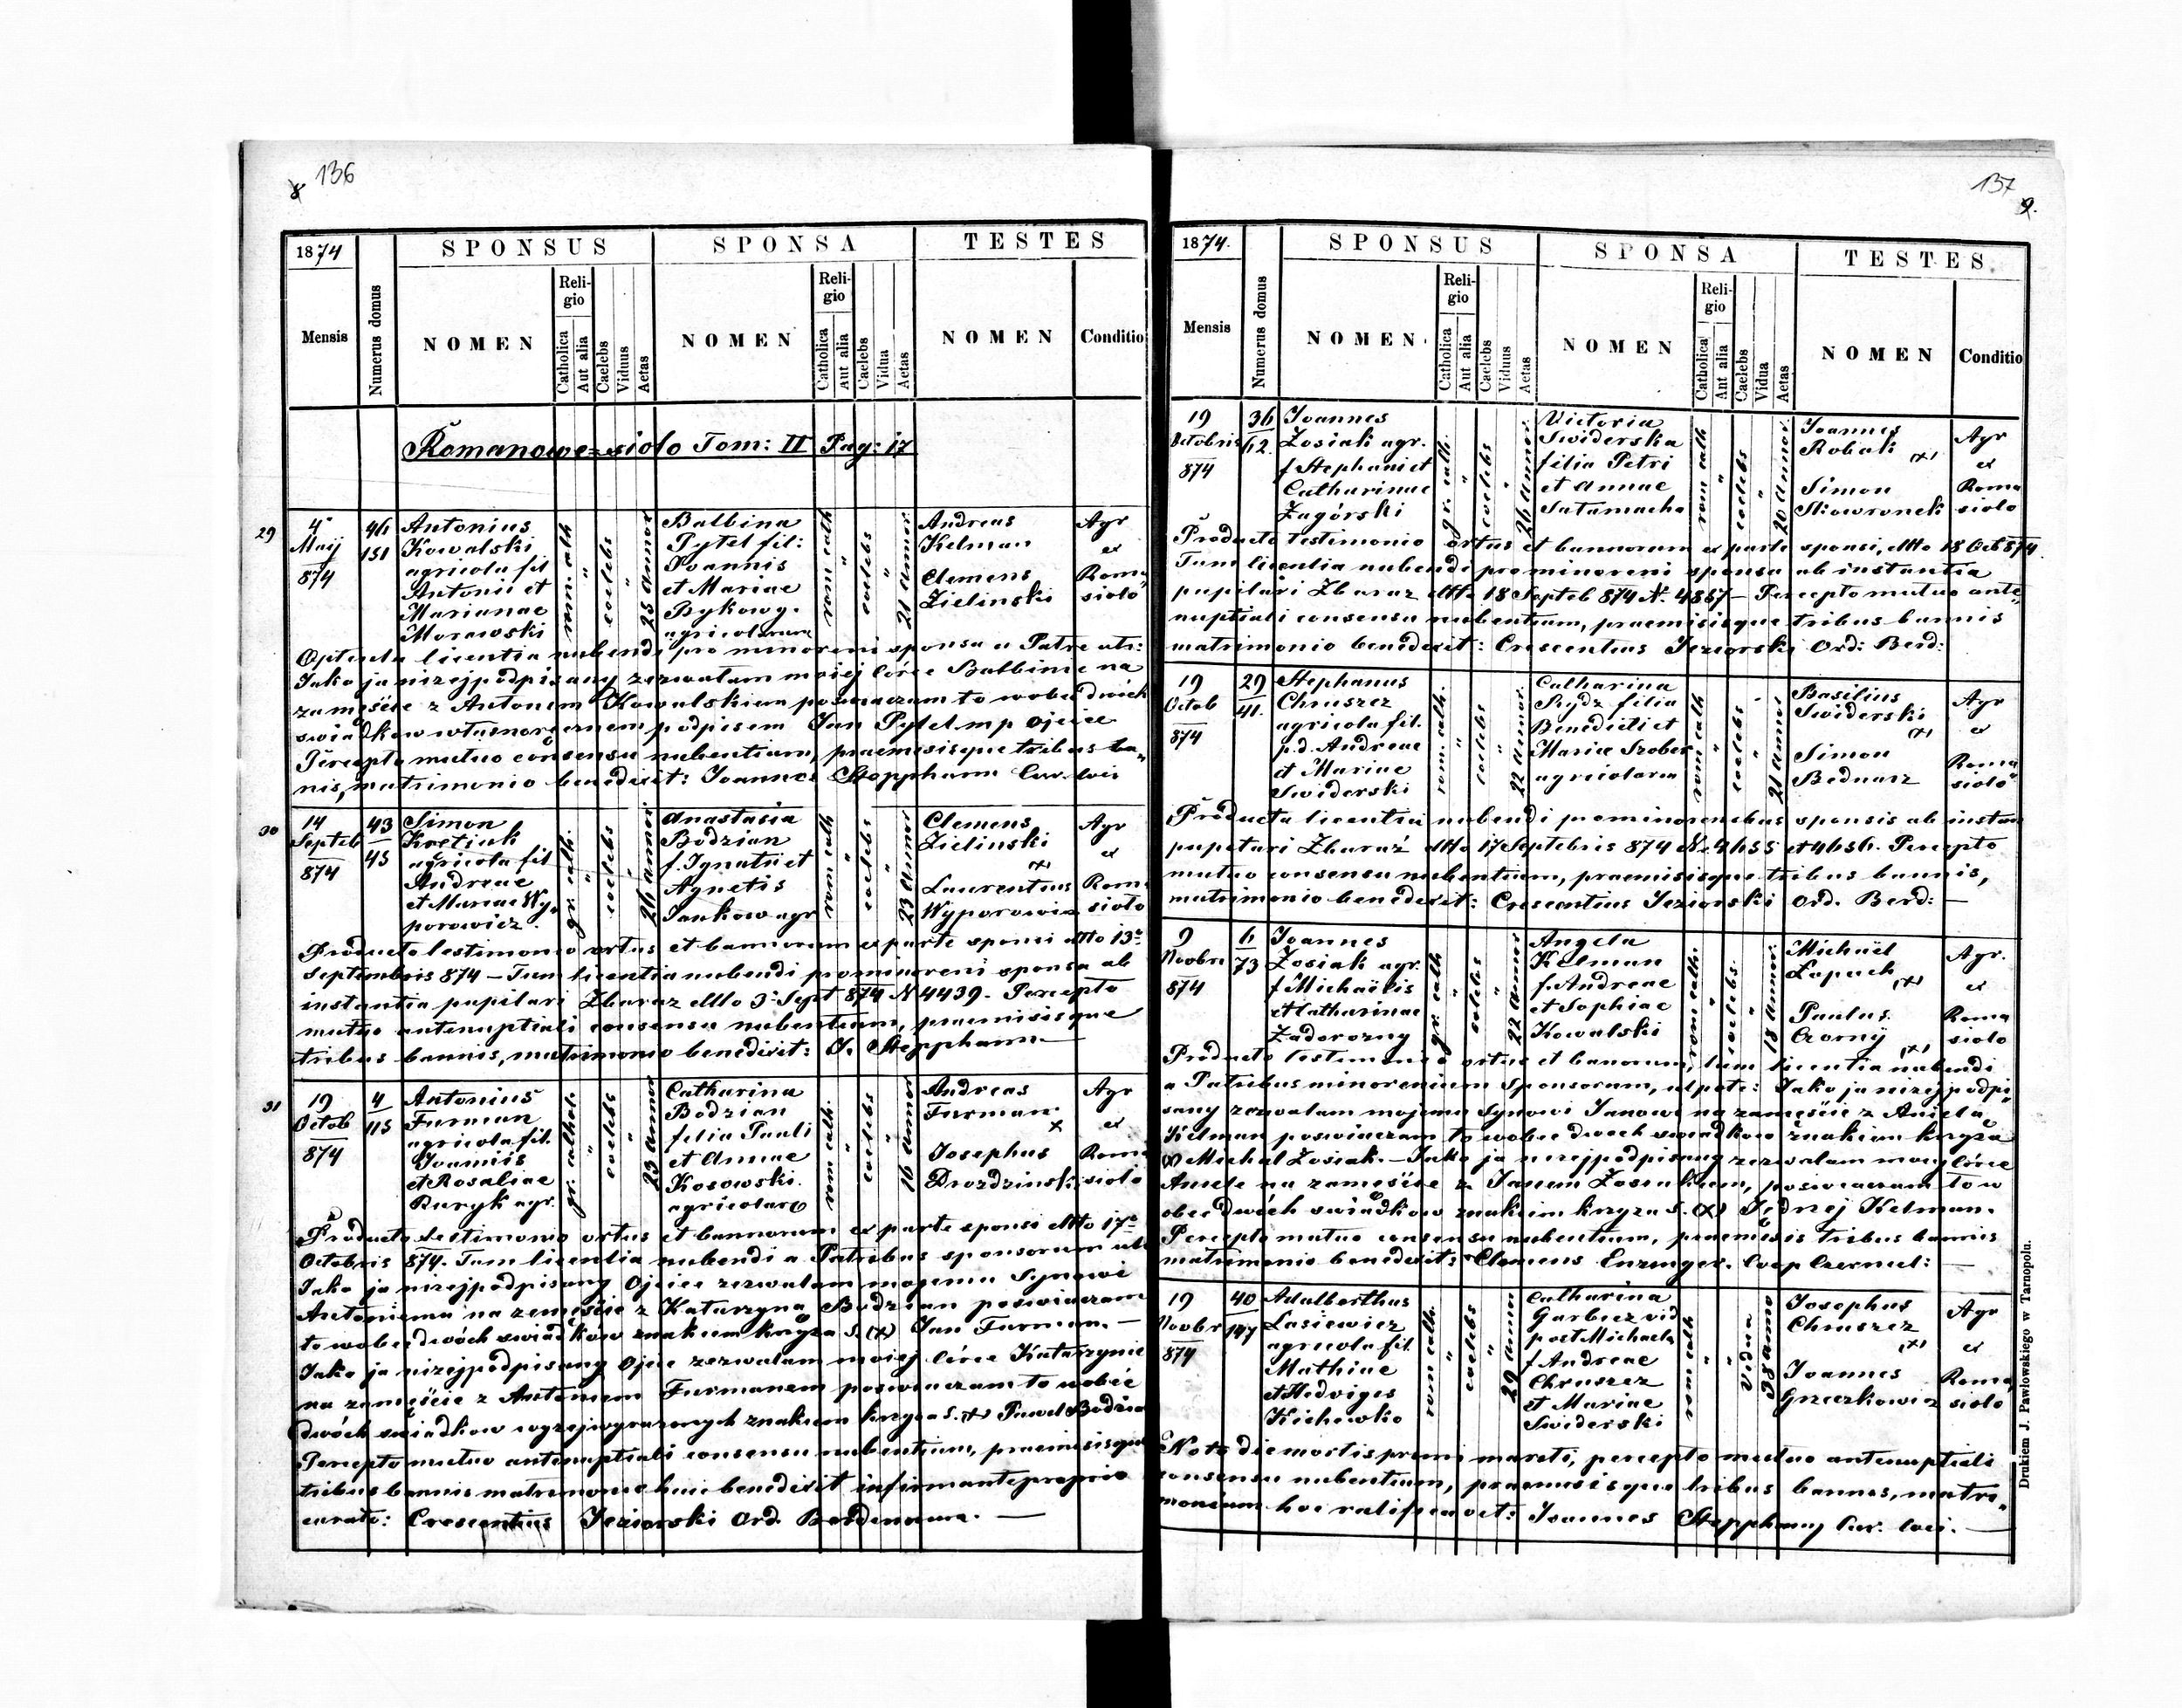 136
8
1874
SPONSUS
SPONSA
TESTES
Mensis
Numerus domus
NOMEN
Religio
Catholica
Aut alia
Caelebs
Viduus
Aetas
NOMEN
Religio
Catholica
Aut alia
Caelebs
Vidua
Aetas
NOMEN
Conditio
Romanowe=siolo Tom: II Pag: 17
29
4
Maij
874
46
151
Antonius
Kowalski
agricola fil
Antonii et
Marianae
Morawski
rom. cath
coelebs
25 annor
Balbina
Pytel fil:
Joannis
et Mariae
Bykowy.
agricolarum
rom cath
coelebs
21 annor
Andreas
Kelman
Clemens
Zielinski
Agr
ex
Roma
siolo
Optenta licentia nubendi pro minoreni sponsa a Patre uti:
Jako ja nizejpodpisany zezwalam mojej córce Balbinie na
zamęście z Antonim Kowalskim poswiaczam to wobec dwóch
swiadkow własnoręcznem podpisem Jan Pytel mp ojciec
Percepto mutuo consensu nubentium, praemisisque tribus ban„
nis, matrimonio benedixit: Joannes Stepphann Cur. loci
30
14
Septeb
874
43
45
Simon
Kretiuk
agricola fil
Andreae
et Mariae Wy„
porowicz.
gr. cath.
coelebs
26 annor
Anastasia
Bodzian
f. Ignatii et
Agnetis
Jankow agr
rom cath
coelebs
23 annor
Clemens
Zielinski
(+)
Laurentius
Wyporowicz
Agr
ex
Roma
siolo
Producto testimonio ortus et bannorum ex parte sponsi dtto 13º
Septembris 874 – Tum licentia nubendi pro minoreni sponsa ab
instantia pupilari Zbaraz dtto 3º Sept 874 N 4439. Percepto
mutuo antenuptiali consensu nubentium, praemisisque
tribus bannis, matrimonio benedixit: J. Stepphann
31
19
Octob
874
4
115
Antonius
Furman
agricola fil.
Joannis
et Rosaliae
Buryk agr.
gr. cathol.
coelebs
23 annor
Catharina
Bodzian
filia Pauli
et Annae
Kosowski.
agricolar
rom cath.
coelebs
16 annor
Andreas
Furman
x
Josephus
Drozdzinski
Agr
ex
Roma
siolo
Producto testimonio ortus et bannorum ex parte sponsi dtto 17º
Octobris 874. Tum licentia nubendi a Patribus sponsorum uti
Jako ja nizejpodpisany Ojciec zezwalam mojemu Synowi
Antoniemu na zamęście z Katarzyna Bodzian poswiaczam
to wobec dwóch swiadków znakiem krzyża s. (+) Jan Furman. –
Jako ja nizejpodpisany Ojciec zezwalam mojej córce Katarzynie
na zamęście z Antonim Furmanem poswiaczam to wobec
dwóch swiadkow wyzejwyrazonych znakiem krzyża s. (+) Pawel Bodzian
Percepto mutuo antenuptiali consensu nubentium, praemisisque
tribus bannis matrimonio huic benedixit infirmante proprio
curato: Crescentius Jeziorski Ord. Berdinorum. –
137
9.
1874.
SPONSUS
SPONSA
TESTES
Mensis
Numerus domus
NOMEN
Religio
Catholica
Aut alia
Caelebs
Viduus
Aetas
NOMEN
Religio
Catholica
Aut alia
Caelebs
Vidua
Aetas
NOMEN
Conditio
19
Octobris
874
36
62.
Joannes
Zosiak agr.
f Stephani et
Catharinae
Zagórski
gr. cath.
coelebs
26 annor.
Victoria
Swiderska
filia Petri
et Annae
Satamacha
rom cath
coelebs
20 annor
Joannes
Robak
(+)
Simon
Skowronek
Agr
ex
Roma
siolo
Producto testimonio ortus et bannorum ex parte sponsi, dtto 18 Oct 874.
Tum licentia nubendi pro minoreni sponsa ab instantia
pupilari Zbaraz dtto 18 Septeb 874 N. 4867 – Percepto mutuo ante„
nuptiali consensu nubentium, praemisisque tribus bannis
matrimonio benedixit: Crescentius Jeziorski Ord: Berd:
19
Octob
874
29
41.
Stephanus
Chruszcz
agricola fil.
p.d. Andreae
et Mariae
Swiderski
rom. cath.
coelebs
22 annor.
Catharina
Rydz filia
Benedicti et
Mariae Szober
agricolarum
rom cath
coelebs
21 annor
Basilius
Swiderski
(+)
Simon
Bednarz
Agr
ex
Roma
siolo
Producta licentia nubendi prominorenibus sponsis ab instan
pupilari Zbaraż dtto 17 Septebris 874 N. 4655 et 4656. Percepto
mutuo consensu nubentium, praemisisque tribus bannis,
matrimonio benedixit: Crescentius Jeziorski Ord. Berd: –
9
Novbr
874
6
73
Joannes
Zosiak agr.
f Michaëlis
et Catharinae
Zadorozny
gr. cath
coelebs
22 annor
Angela
Kelman
f. Andreae
et Sophiae
Kowalski
rom cath.
coelebs.
18 annor.
Michaël
Lapach
(+)
Paulus
Czorny
(+)
Agr.
ex
Roma
siolo
Producto testimonio ortus et banorum, tum licentia nubendi
a Patribus minorenium Sponsorum, utpote: Jako ja nizejpodpi„
sany zezwalam mojemu Synowi Janowi na zamęście z Aniela
Kelman poswiaczam to wobec dwoch swiadkow znakiem krzyża
(+) Michal Zosiak. – Jako ja nizejpodpisany zezwalam mojej córce
Aniele na zamęście z Janem Zosiakiem, poswiaczam to w
obec dwóch swiadkow znakiem krzyza s. (+) Jędrzej Kelman.
Percepto mutuo consensu nubentium, praemisis tribus bannis
matrimonio benedixit: Clemens Enzinger. Coop Czernil: –
19
Novbr
874
40
147
Adalberthus
Lasiewicz
agricola fil.
Mathiae
et Hedviges
Kichewko
rom cath.
coelebs
29 annor
Catharina
Garbicz vid
post Michaelem
f Andreae
Chruszcz
et Mariae
Swiderski
rom cath
vidua
38 annor
Josephus
Chruszcz
(+)
Joannes
Greczkowicz
Agr
ex
Roma
siolo
Noto die mortis primi mariti, percepto mutuo antenuptiali
consensu nubentium, praemisisque tribus bannis, matri„
monium hoc ratificavit: Joannes Steppham Cur. loci. –
Drukiem J. Pawłowskiego w Tarnopolu.